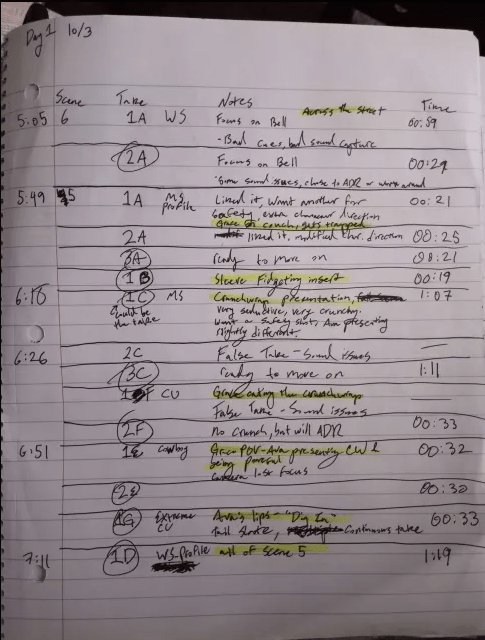 Day 1 10/3
Scene Take Notes Time
5:05 6 1A WS Focus on Bell Across the street 00:59
-Bad cues, bad sound capture
2A Focus on Bell 00:29
Some sound issues, chose to ADR or work around
5:49 5 1A MS Profile Liked it, want another for 00:21
safety, extra character direction
Grace on couch, gets trapped
2A liked it, modified char. direction 00:25
3A ready to move on 08:21
1B Sleeve Fidgeting insert 00:19
6:16 1C MS Crunchwrap presentation, 1:07
Could be the take very seductive, very crunchy.
Want a safety shot, Ava presenting
slightly different.
6:26 2C False Take - Sound issues —
3C ready to move on 1:11
1F CU Grace eating the crunchwrap —
False Take - Sound issues
2F No crunch, but will ADR 00:33
6:51 1E Cowboy Grace POV - Ava presenting CW & 00:32
being
camera lost focus
2E 00:30
1G Extreme CU Ava's lips - "Dig In" 00:33
tail slate, Continuous take
7:11 1D WS profile all of scene 5 1:19